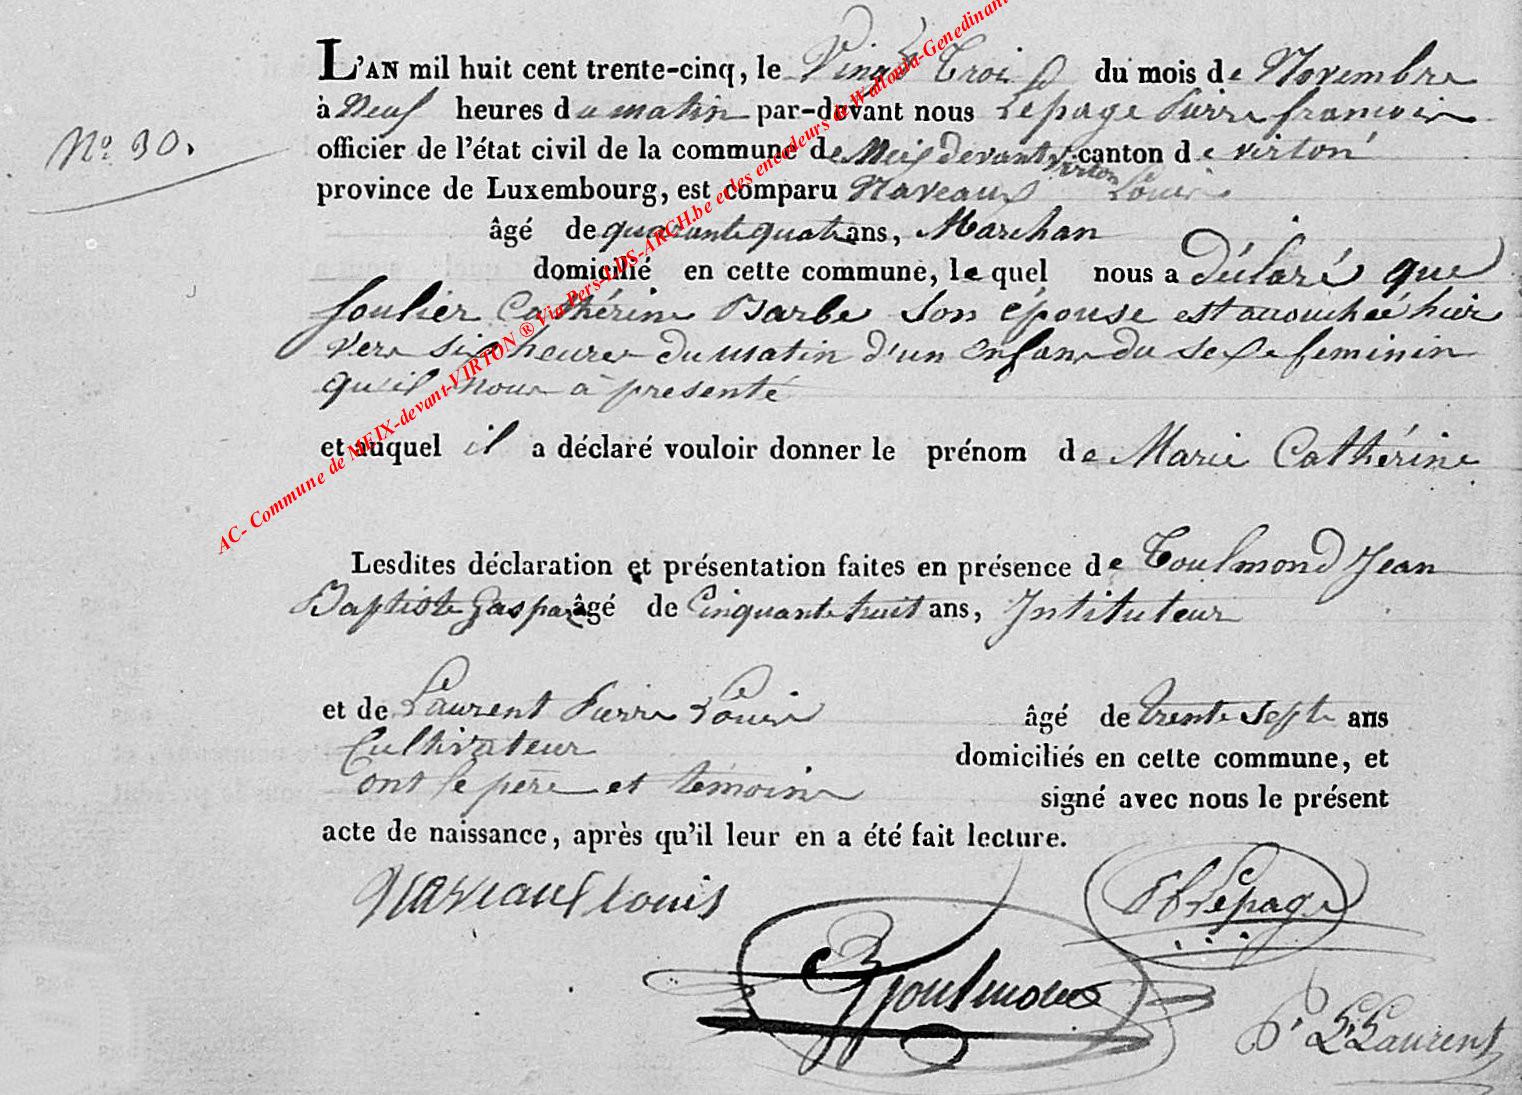 L'AN mil huit cent trente-cinq, le Vingt Trois du mois de Novembre
à Neuf heures du matin par-devant nous Lepage Pierre francois
officier de l'état civil de la commune de Meix devant Virton canton de virton
province de Luxembourg, est comparu Naveaux Louis
N.º 30.
âgé de quarante quatre ans, Marchan
domicilié en cette commune, lequel nous a déclaré que
foulier Cathérine Barbe son épouse est accouchéé hier
vers six heures du matin d'un enfant du sexe feminin
qu'il nous à presenté
et auquel il a déclaré vouloir donner le prénom de Marie Cathérine
Lesdites déclaration et présentation faites en présence de Toulmond Jean
Baptiste Gaspar âgé de Cinquante huit ans, Instituteur
et de Laurent Pierre Louis âgé de trente sept ans
Cultivateur domiciliés en cette commune, et
ont le père et témoins signé avec nous le présent
acte de naissance, après qu'il leur en a été fait lecture.
Naveaux louis
Lepage
Toulmond
P. L. Laurent
AC- Commune de MEIX-devant-VIRTON ® Via Pers-LDS-ARCH.be et les encodeurs de Wallonia-Genedinant